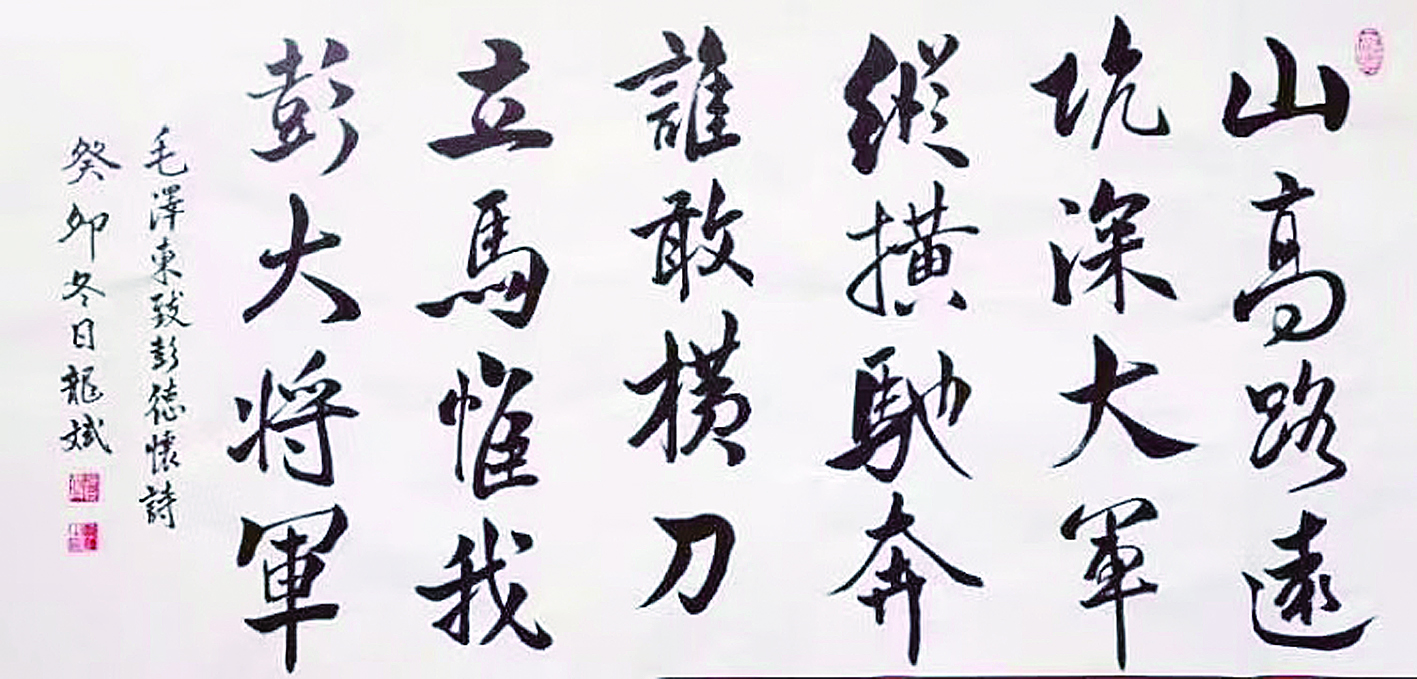 山高路遠
坑深大軍
縱横馳奔
誰敢横刀
立馬惟我
彭大将軍
毛澤東致彭德懷詩
癸卯冬日龍斌